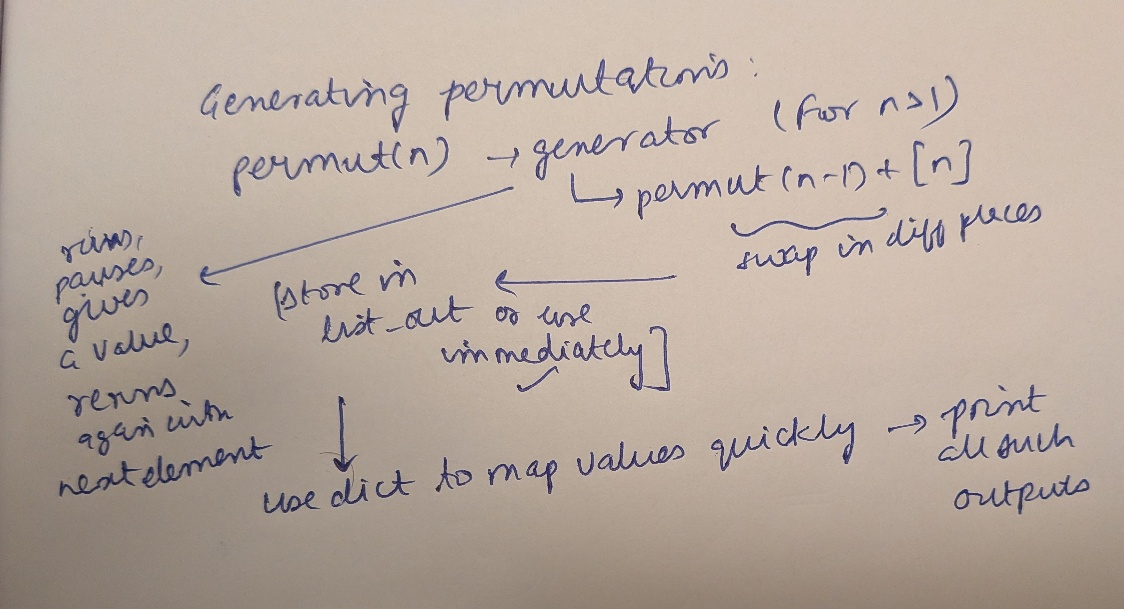 Generating permutations:
permut(n) → generator (for n>1)
↳ permut(n-1) + [n]
swap in diff places
runs,
pauses,
gives
a value,
reruns
again with
next element
[store in
list_out or use
immediately]
use dict to map values quickly → print
all such
outputs